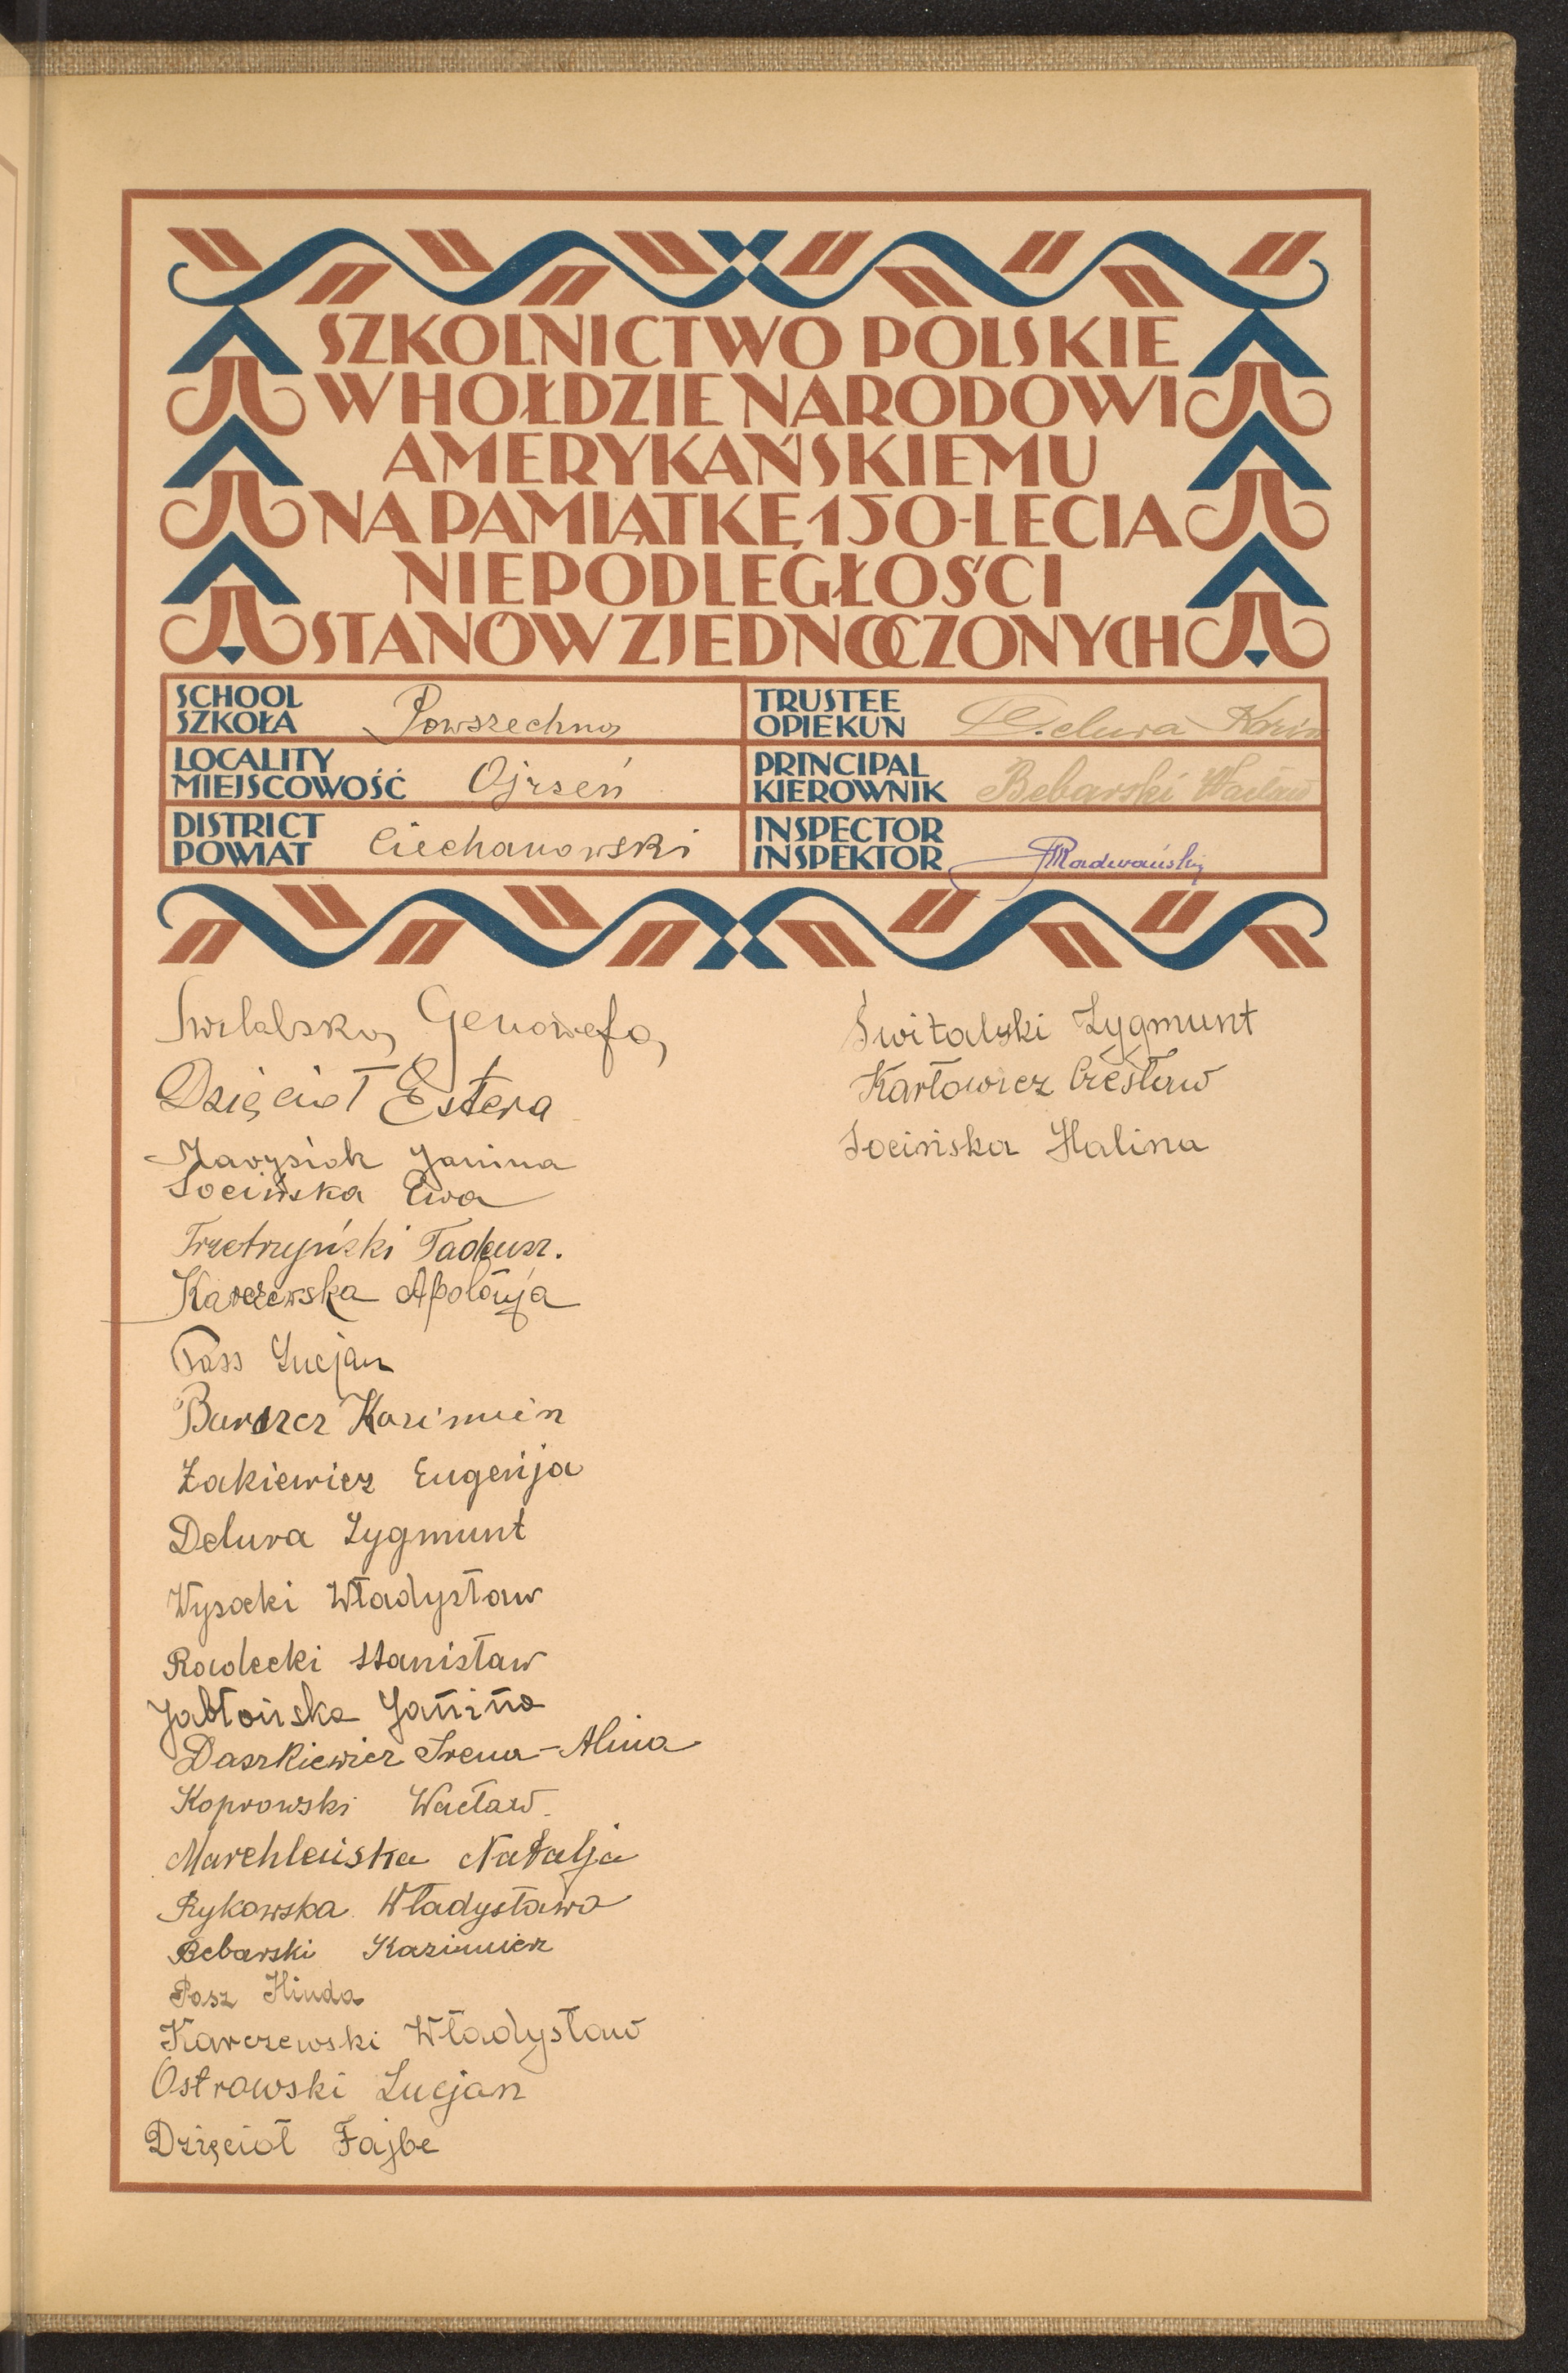 SZKOLNICTWO POLSKIE
W HOŁDZIE NARODOWI
AMERYKAŃSKIEMU
NA PAMIĄTKĘ 150-LECIA
NIEPODLEGŁOŚCI
STANÓW ZJEDNOCZONYCH
SCHOOL
SZKOŁA Powszechna
LOCALITY
MIEJSCOWOŚĆ Ojrzeń
DISTRICT
POWIAT Ciechanowski
TRUSTEE
OPIEKUN Delura
PRINCIPAL
KIEROWNIK Bebarski Wacław
INSPECTOR
INSPEKTOR Radwański
Świtalska Genowefa
Dzięcioł Estera
Janina
Socińska Ewa
Trzetrzyński Tadeusz.
Karczewska Apolonja
Pass Lucjan
Barszcz Kazimierz
Żakiewicz Eugenja
Delura Zygmunt
Wysocki Władysław
Radecki Stanisław
Jabłońska Janina
Daszkiewicz Irena-Alina
Koprowski Wacław.
Marchleńska Natalja
Rykowska Władysława
Bebarski Kazimierz
Pasz Hinda
Karczewski Władysław
Ostrowski Lucjan
Dzięcioł Fajbe
Świtalski Zygmunt
Karłowicz Czesław
Socińska Halina